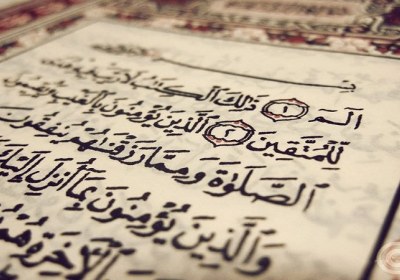 الٓمٓ ١ ذَٰلِكَ ٱلْكِتَٰبُ لَا رَيْبَ فِيهِ هُدًى
لِّلْمُتَّقِينَ ٢ ٱلَّذِينَ يُؤْمِنُونَ بِٱلْغَيْبِ وَيُقِيمُونَ
ٱلصَّلَوٰةَ وَمِمَّا رَزَقْنَٰهُمْ يُنفِقُونَ
وَٱلَّذِينَ يُؤْمِنُونَ بِمَآ أُنزِلَ إِلَيْكَ
وَبِٱلْأَخِرَةِ هُمْ